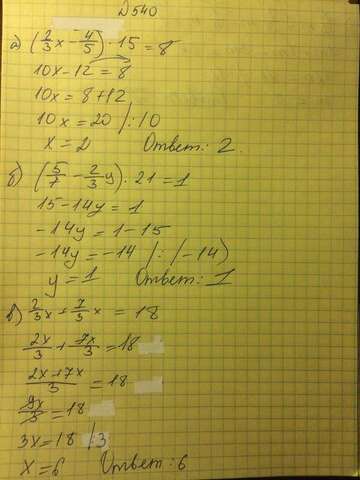 №540
а) (2/3x - 4/5) · 15 = 8
10x - 12 = 8
10x = 8 + 12
10x = 20 /: 10
x = 2 Ответ: 2.
б) (5/7 - 2/3y) · 21 = 1
15 - 14y = 1
-14y = 1 - 15
-14y = -14 /: (-14)
y = 1 Ответ: 1
в) 2/3x + 7/3x = 18
2x/3 + 7x/3 = 18
2x+7x/3 = 18
9x/3 = 18
3x = 18 /:3
x = 6 Ответ: 6